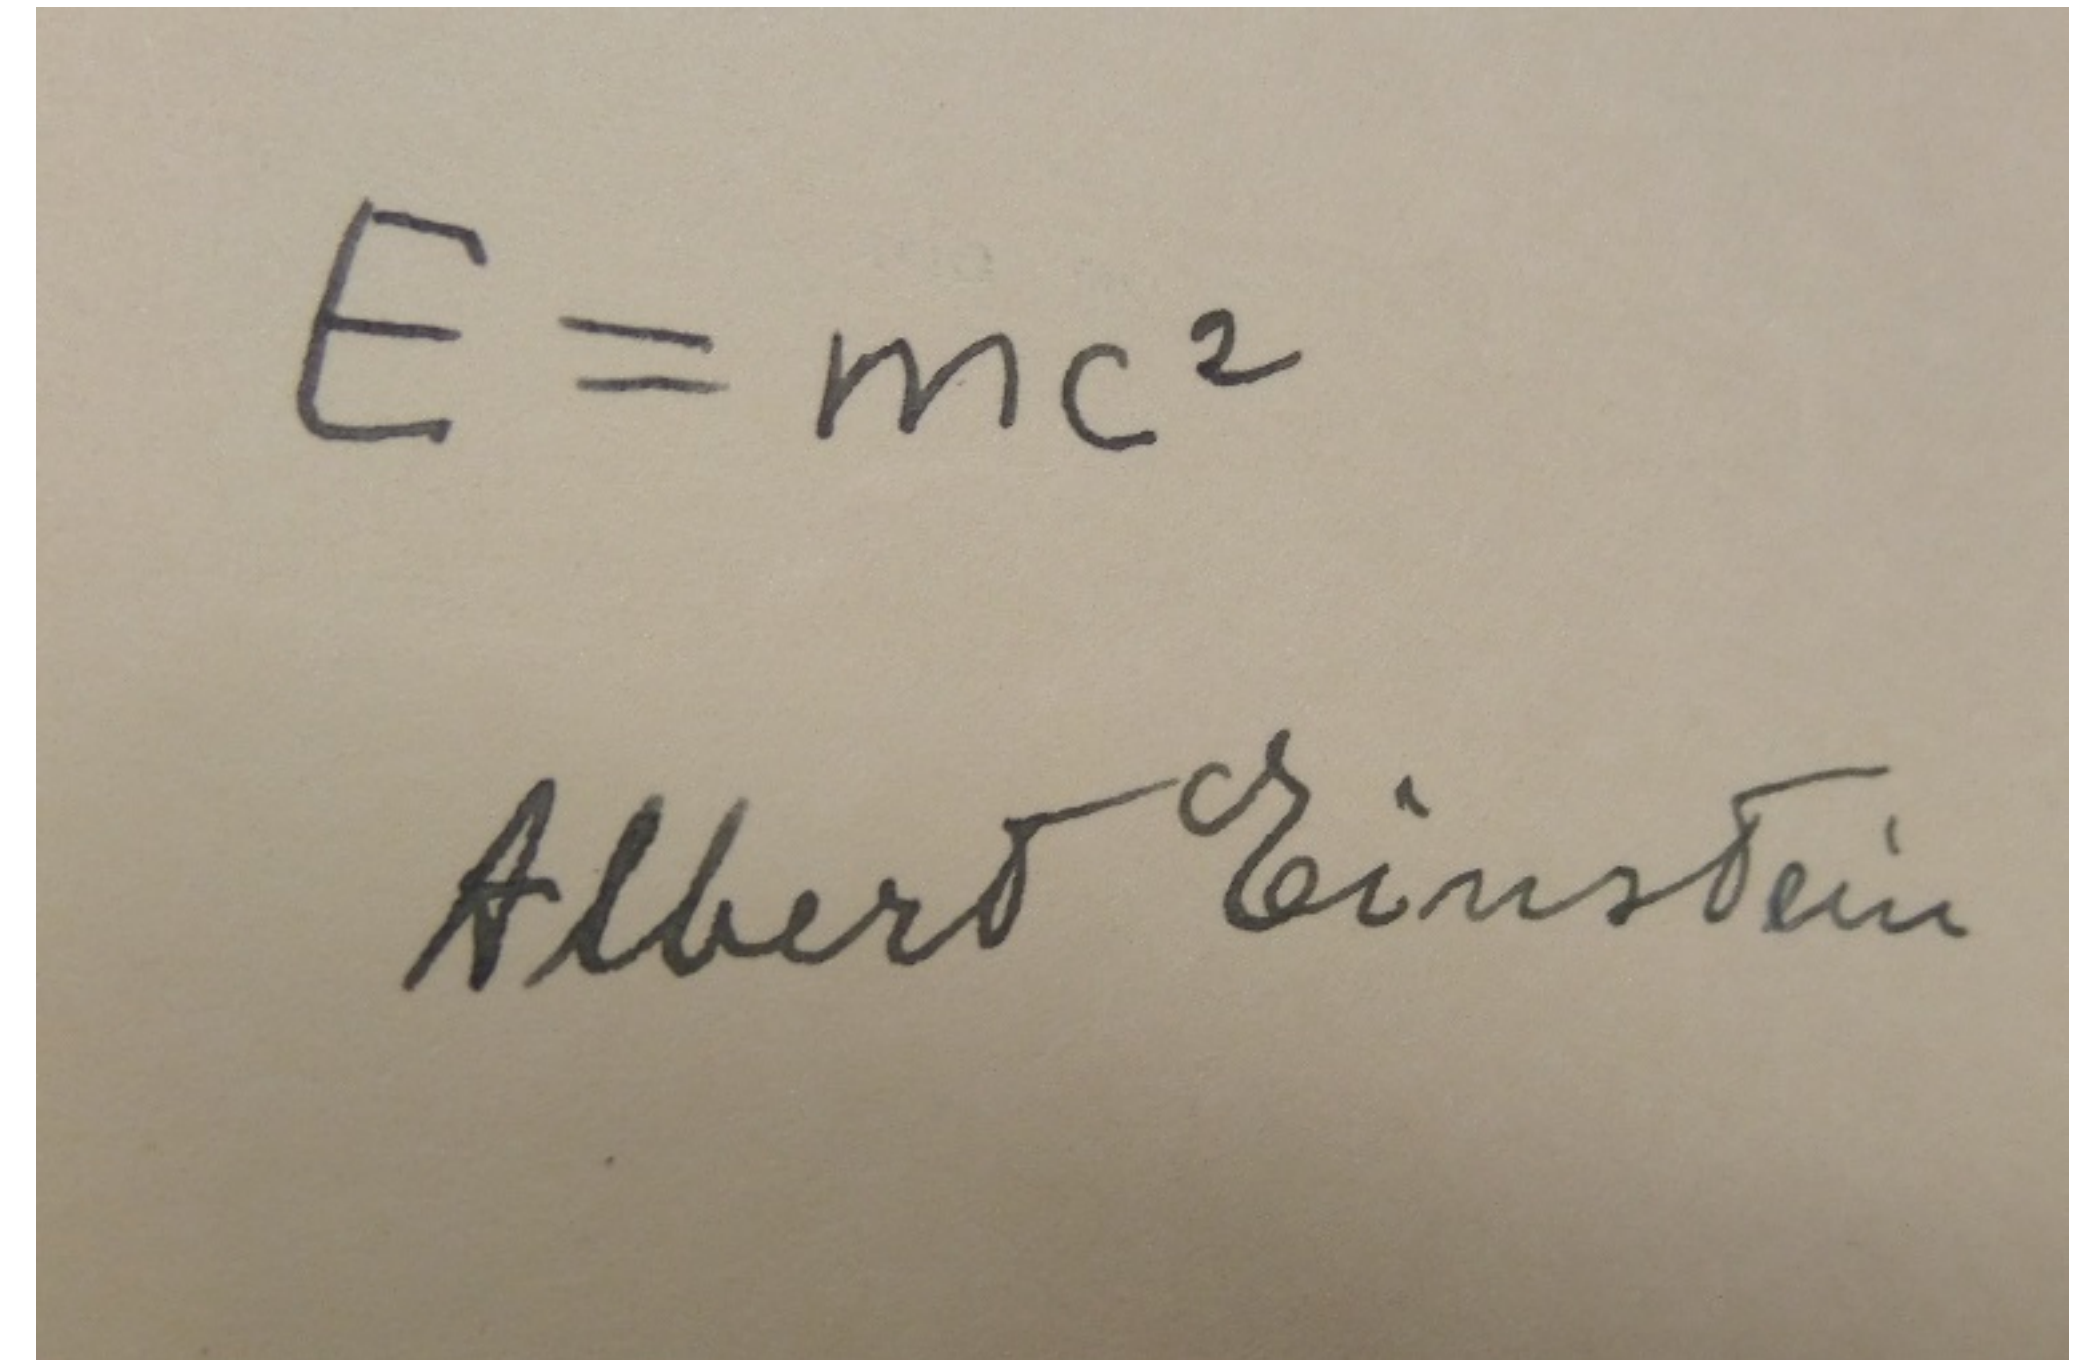 E = mc²
Albert Einstein